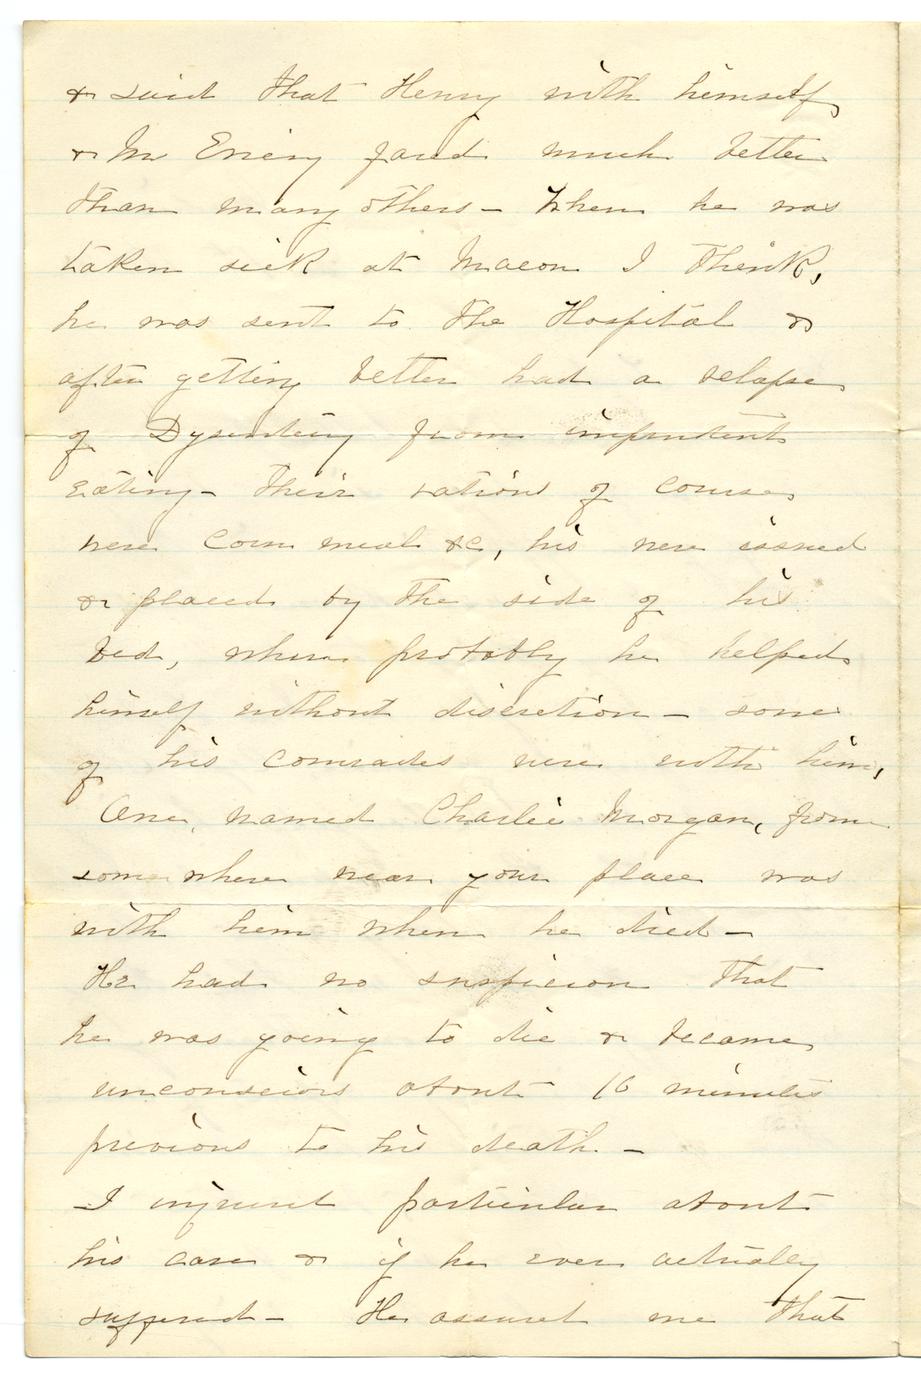 & said that Henry with himself
& Mr Emery fared much better
than many others – When he was
taken sick at Macon I think,
he was sent to the Hospital &
after getting better had a relapse
of Dysentery from imprudent
eating – their rations of course
were corn meal &c, his were issued
& placed by the side of his
bed, where probably he helped
himself without discretion – some
of his comrades were with him,
One, named Charlie Morgan, from
somewhere near your place was
with him when he died –
He had no suspicion that
he was going to die & became
unconscious about 10 minutes
previous to his death. –
I inquired particular about
his care & if he ever actually
suffered – He assured me that